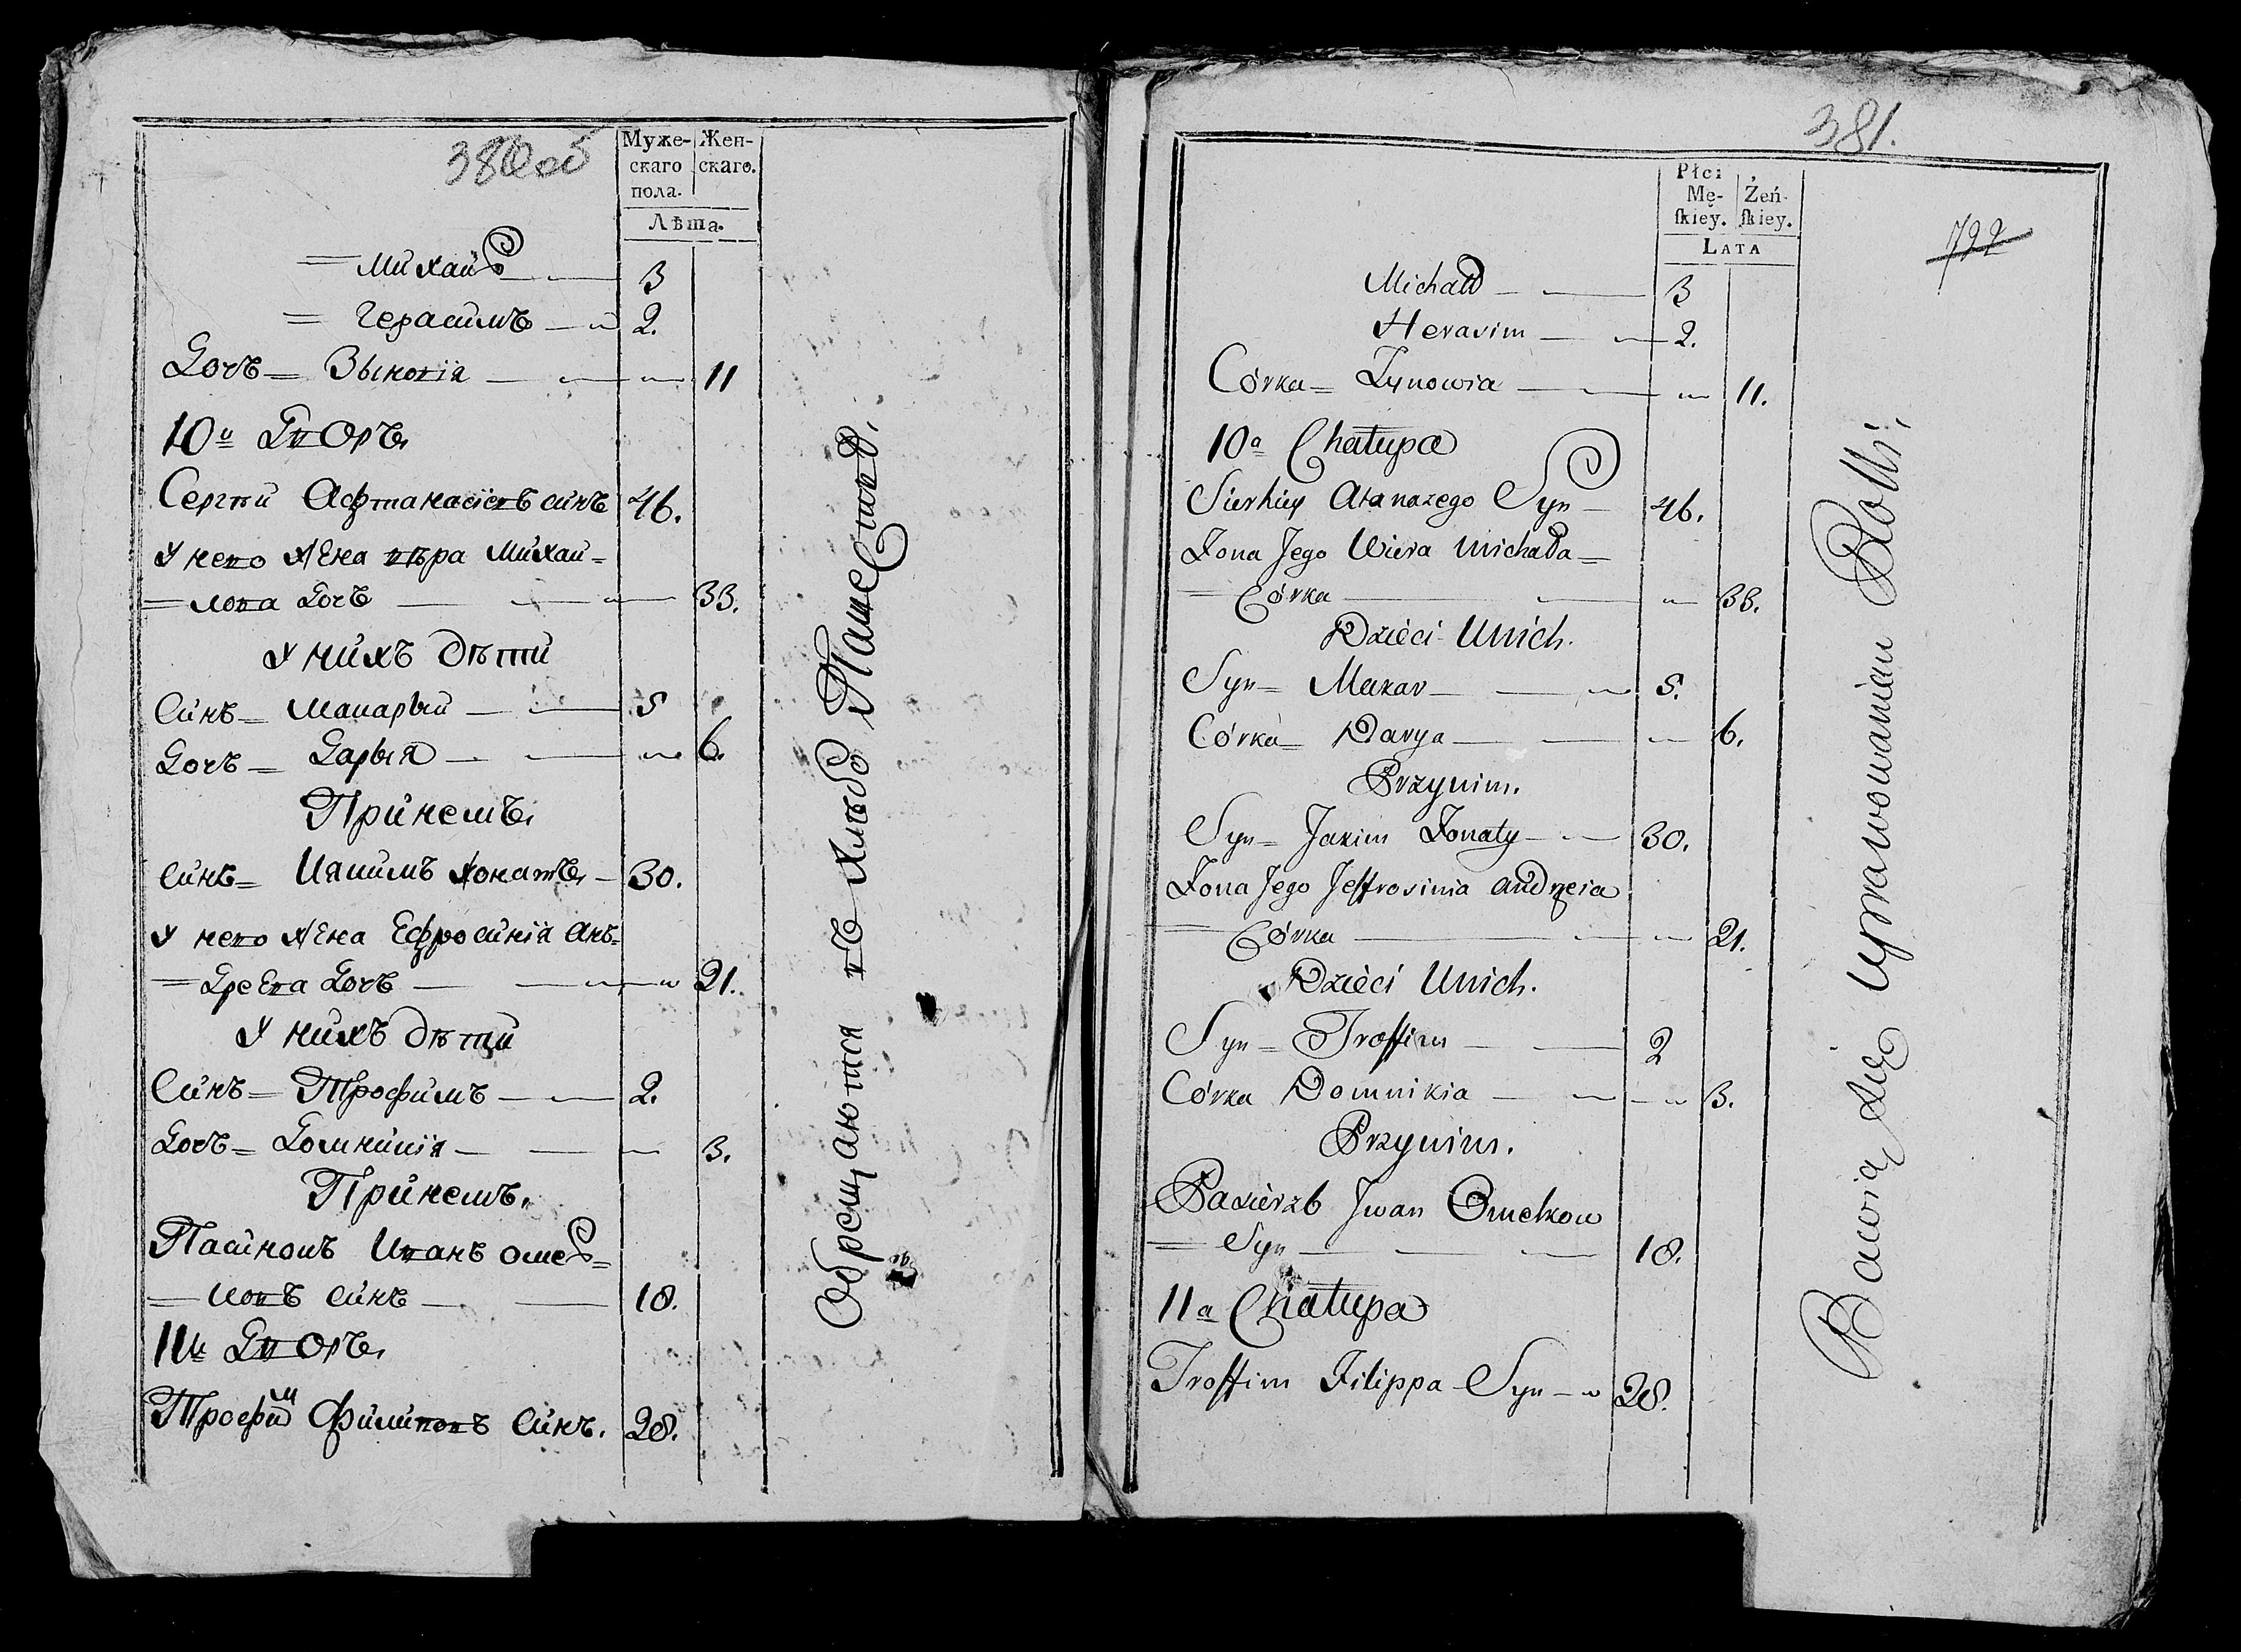 380 об
Муже-
скаго
пола.
Жен-
скаго.
Лѣта.
= Михайло 3
= Герасимъ 2.
Дочь = Зыновія 11
10й Дворъ
Сергѣй Афтанасіевъ синъ 46.
У него жена вѣра Михай=
=лова дочь 33.
У нихъ дѣти
Синъ = Макарый 5
Дочь = Дарыя 6.
При немъ
синъ = Иакимъ жонатъ 30.
У него жена Ефросинія Анъ=
=дреева дочь 21.
У нихъ дѣти
Синъ = Трофимъ 2.
Дочь = Домникія 3.
При немъ.
Пасинокъ Иванъ омел=
=ковъ синъ 18.
11й Дворъ
Трофим Филиповъ синъ. 28.
Обрещаются въ хлѣбо Пашествѣ,
381.
722
Płci
Mę-
skiey.
Żeń-
skiey.
LATA
Michał 3
Herasim 2.
Córka = Zynowia 11.
10a Chałupa
Sierhiey Atanazego Syn 46.
Żona Jego Wiera Michała =
= Córka 33.
Dzieci Unich.
Syn = Makar 5.
Córka = Darya 6.
Przynim.
Syn = Jakim Żonaty 30.
Żona Jego Jeffrosinia Andrzeia
= Córka 21.
Dzieci Unich.
Syn = Troffim 2
Córka Domnikia 3.
Przynim.
Pasierzb Jwan Omelkow
= Syn 18.
11a Chałupa
Troffim Filippa Syn 28.
Bawią się uprawowaniem Rolli,